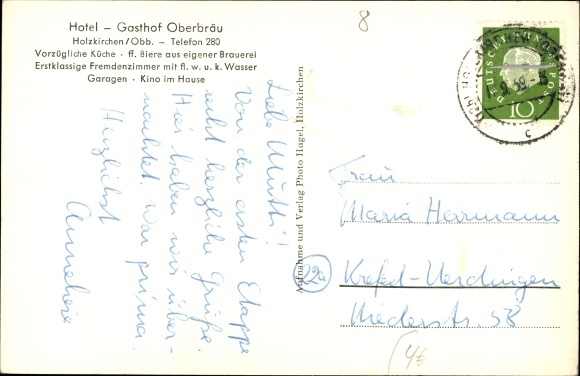 Hotel – Gasthof Oberbräu
Holzkirchen/Obb. – Telefon 280
Vorzügliche Küche · ff. Biere aus eigener Brauerei
Erstklassige Fremdenzimmer mit fl. w. u. k. Wasser
Garagen · Kino im Hause
8
Liebe Mutti!
Von der ersten Etappe
recht herzliche Grüße.
Hier haben wir über-
nachtet. War prima.
Herzlichst
Anneliese
Aufnahme und Verlag Photo Hugel, Holzkirchen
DEUTSCHE BUNDESPOST
10
59
c
Frau
Maria Herrmann
22a
Krefeld-Uerdingen
Niederstr. 58
4€